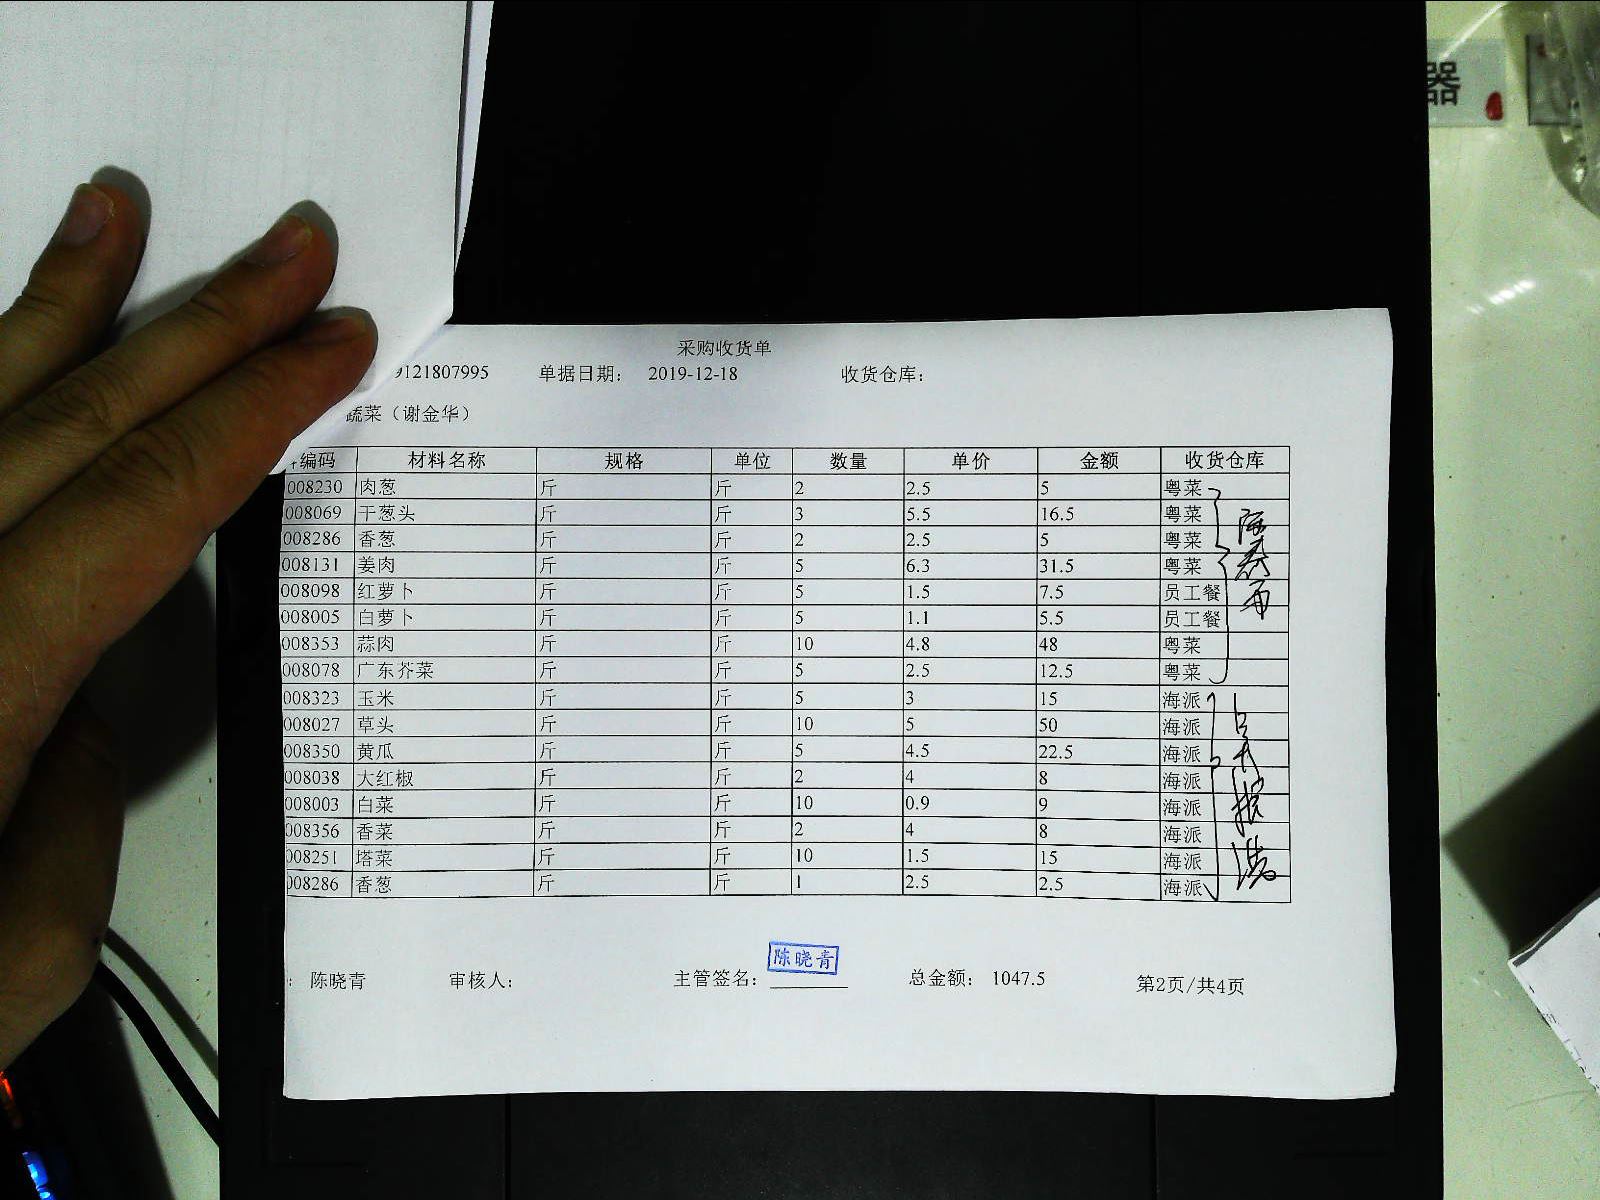 器
采购收货单
9121807995 单据日期： 2019-12-18 收货仓库：
蔬菜（谢金华）
编码 材料名称 规格 单位 数量 单价 金额 收货仓库
008230 肉葱 斤 斤 2 2.5 5 粤菜
008069 干葱头 斤 斤 3 5.5 16.5 粤菜
008286 香葱 斤 斤 2 2.5 5 粤菜
008131 姜肉 斤 斤 5 6.3 31.5 粤菜
008098 红萝卜 斤 斤 5 1.5 7.5 员工餐
008005 白萝卜 斤 斤 5 1.1 5.5 员工餐
008353 蒜肉 斤 斤 10 4.8 48 粤菜
008078 广东芥菜 斤 斤 5 2.5 12.5 粤菜
008323 玉米 斤 斤 5 3 15 海派
008027 草头 斤 斤 10 5 50 海派
008350 黄瓜 斤 斤 5 4.5 22.5 海派
008038 大红椒 斤 斤 2 4 8 海派
008003 白菜 斤 斤 10 0.9 9 海派
008356 香菜 斤 斤 2 4 8 海派
008251 塔菜 斤 斤 10 1.5 15 海派
008286 香葱 斤 斤 1 2.5 2.5 海派
陈晓青
: 陈晓青 审核人： 主管签名： 总金额： 1047.5 第2页/共4页